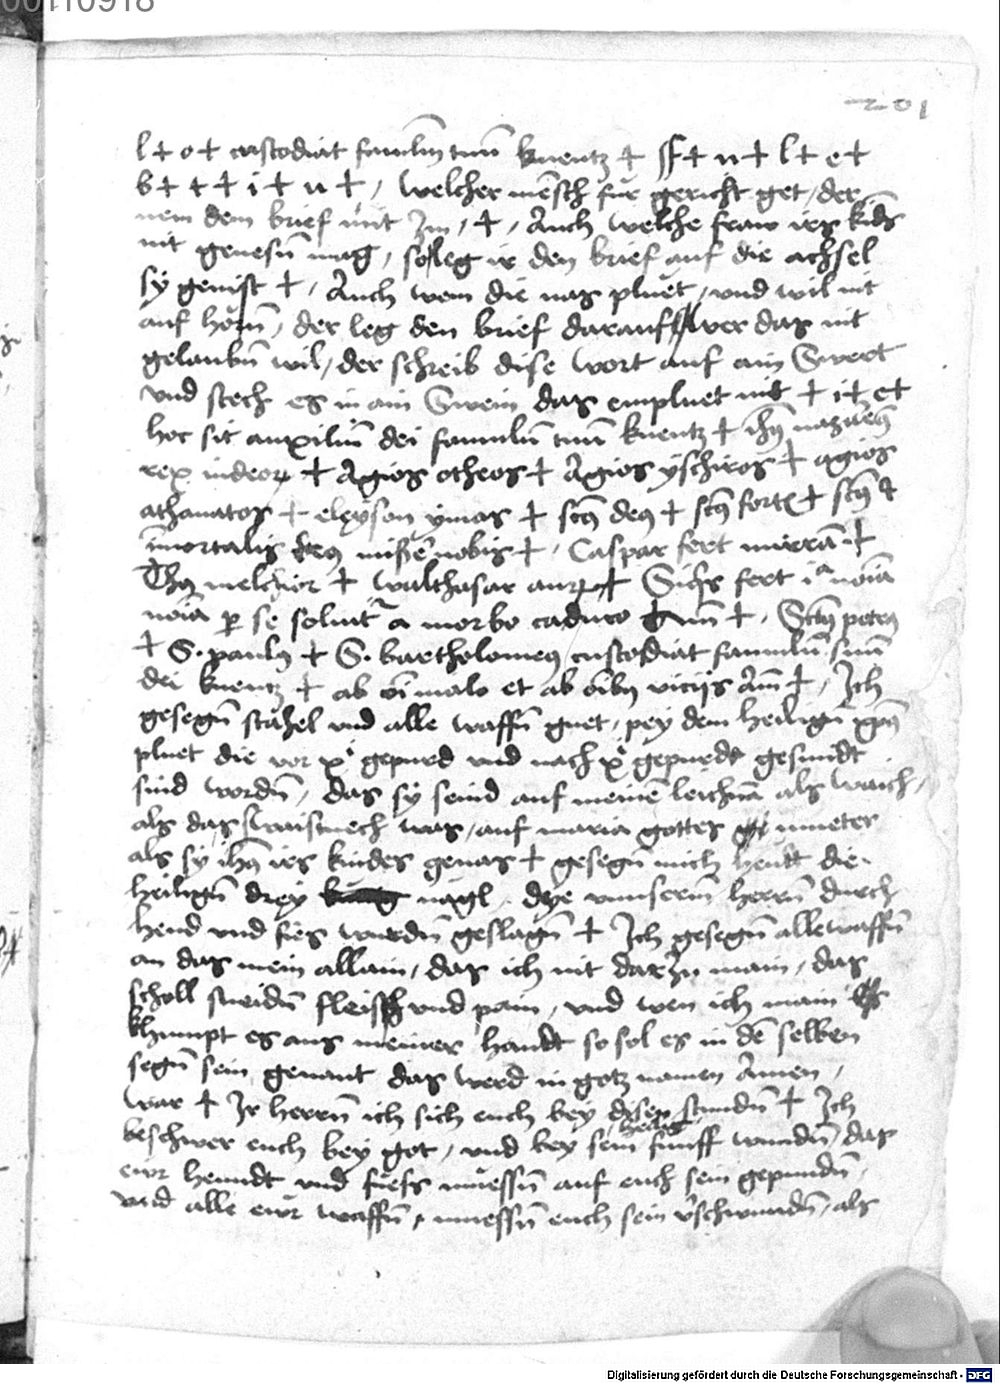 00110918
201
l + o + custodiat famulũ tuũ kuentz + ff + n + l + e +
b + t + i + n + / welcher mẽsch fur gericht get / der
nem dem brief mit Jm / + / Auch welche fraw irs kids
nit genesñ mag / so leg ir den brief auf die achsel
sy genist + / Auch wem die nas pluet / und wil nit
auf hörñ / der leg den brief darauf / wer das nit
gelaubñ wil / der schreib dise wort auf ain Swert
vnd stech es in ain Swein das empluet nit + i + e +
hoc sit auxiliũ dei famulũ tuũ kuentz + ihs nazarẽ9
rex iudeor + Agios otheos + Agios yschiros + agios
athanatos + eleyson ymas + sct9 de9 + sct9 fortis + sct9 &
ĩmortalis miserẽ nobis + / Caspar fert mirrã +
Th9 melchior + walthasar aur + fert noĩa
noĩa p se soluit a morbo caduco + / Sct9 petr9
+ S. paul9 + S. bartholome9 custodiat famulũ suũ
dei kuentz + ab oĩ malo et ab oĩb9 vicijs Am̃ + / Ich
gesegñ stahel vnd alle waffñ guet / pey dem heiligñ xp̃s
pluet die vor xp̃ gepurd vnd nach xp̃ gepurdt gesmidt
sind wordñ / das sy seind auf meinẽ leichnã als waich /
als das swaistuech was / auf maria gottes mueter
als sy ihs irs kindes genas + gesegñ mich heutt die
heiligñ drey nagl / dye vnnserm̃ herrñ durch
hend vnd fües wurdñ geslagñ + Ich gesegñ alle waffñ
an das mein allain / das ich nit darzu main / das
scholl sneidñ fleisch vnd pain / vnd wen ich main
khumpt es aus meiner handt so sol es in dẽ selben
segñ sein genant das werd in gotz namen Amen /
war + Ir herrñ ich sich euch bey disen stundñ + Ich
beschwer euch bey got / vnd bey sein heilig funff wundñ / das
ewr henndt vnd fuess muessñ auf euch sein gepundñ /
vnd alle ewr waffñ / muessñ euch sein v̾schwundñ / als
Digitalisierung gefördert durch die Deutsche Forschungsgemeinschaft - DFG